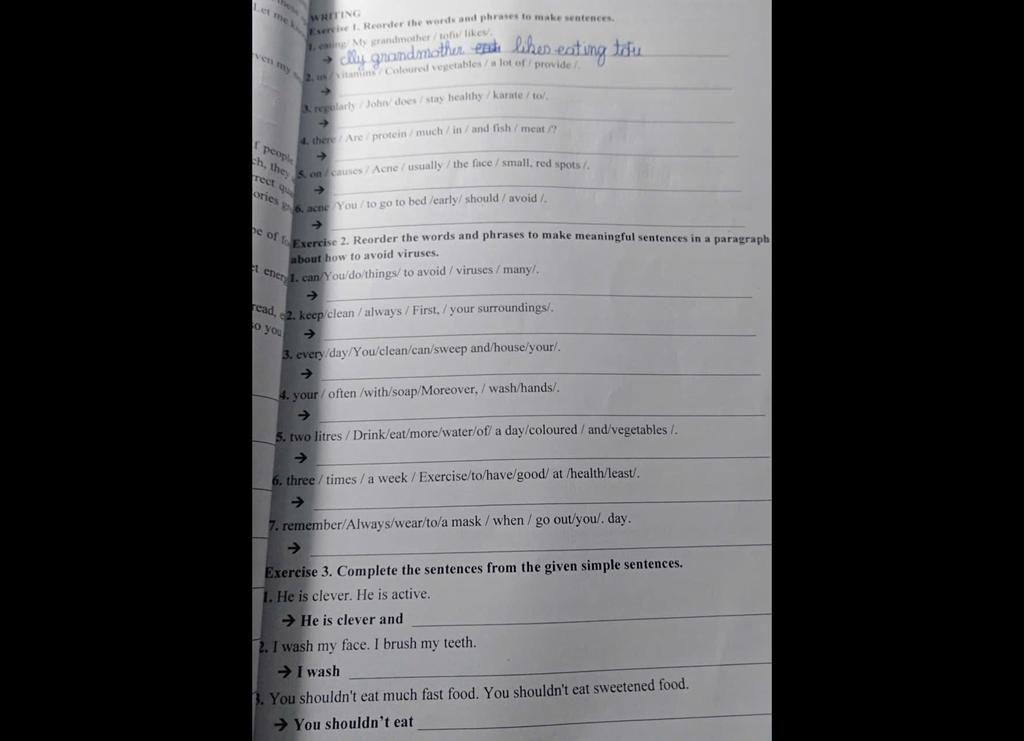 these
Let me
WRITING
Exercise 1. Reorder the words and phrases to make sentences.
1. eating/ My grandmother / tofu/ likes/.
→ My grandmother likes eating tofu
ven my
2. us / vitamins / Coloured vegetables / a lot of / provide /.
→
3. regularly / John/ does / stay healthy / karate / to/.
→
4. there / Are / protein / much / in / and fish / meat /?
→
f people
ch, they
5. on / causes / Acne / usually / the face / small, red spots /.
→
rect
ories
6. acne /You / to go to bed /early/ should / avoid /.
→
be of
Exercise 2. Reorder the words and phrases to make meaningful sentences in a paragraph
about how to avoid viruses.
et ener
1. can/You/do/things/ to avoid / viruses / many/.
→
read,
2. keep/clean / always / First, / your surroundings/.
so you
→
3. every/day/You/clean/can/sweep and/house/your/.
→
4. your / often /with/soap/Moreover, / wash/hands/.
→
5. two litres / Drink/eat/more/water/of/ a day/coloured / and/vegetables /.
→
6. three / times / a week / Exercise/to/have/good/ at /health/least/.
→
7. remember/Always/wear/to/a mask / when / go out/you/. day.
→
Exercise 3. Complete the sentences from the given simple sentences.
1. He is clever. He is active.
→ He is clever and
2. I wash my face. I brush my teeth.
→ I wash
3. You shouldn't eat much fast food. You shouldn't eat sweetened food.
→ You shouldn't eat